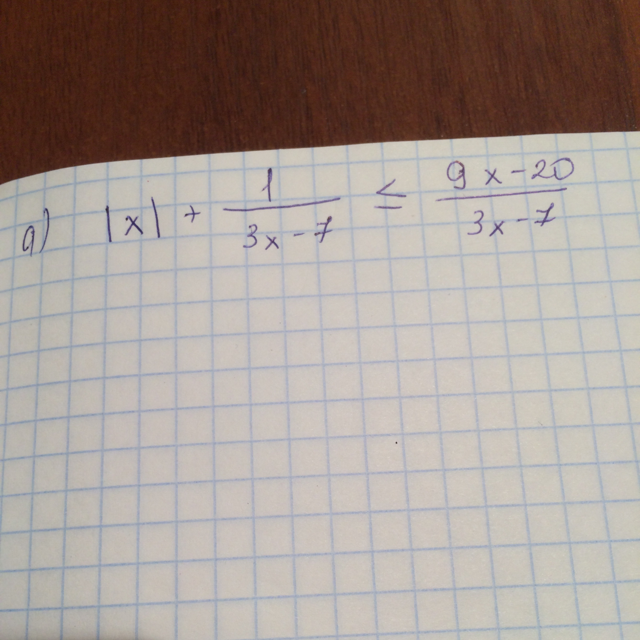 а) |x| + 1/(3x-7) ≤ (9x-20)/(3x-7)